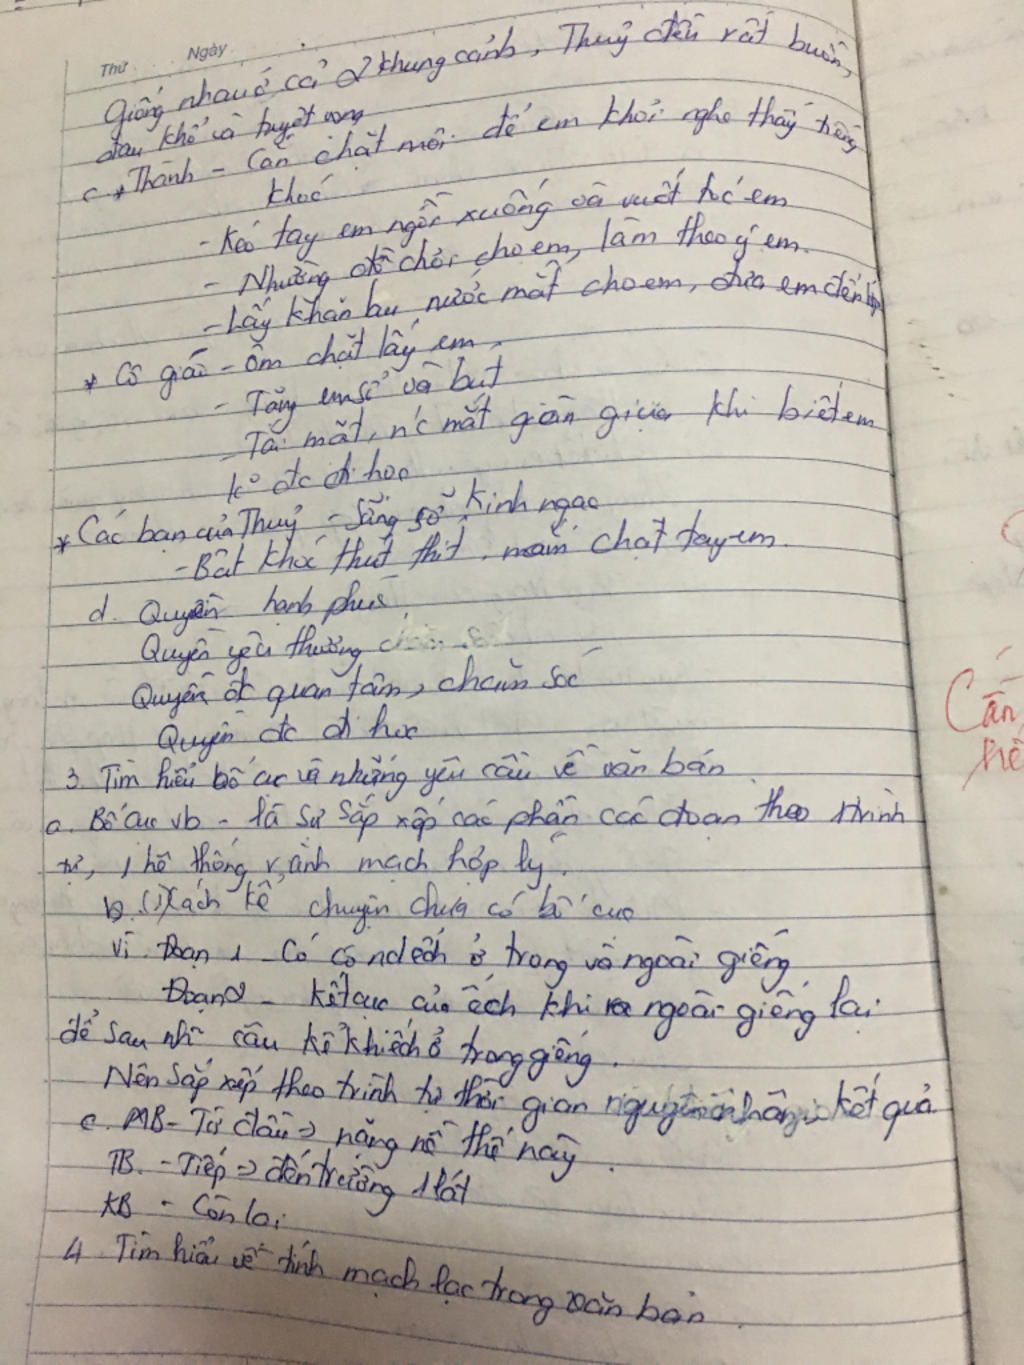 Thứ Ngày
Giống nhau ở cả 2 khung cảnh, Thuỷ đều rất buồn,
đau khổ và tuyệt vọng
c * Thành - Cắn chặt môi để em khỏi nghe thấy tiếng
khóc
- Kéo tay em ngồi xuống và vuốt tóc em
- Nhường đồ chơi cho em, làm theo ý em.
- Lấy khăn lau nước mắt cho em, đưa em đến lớp
* Cô giáo - Ôm chặt lấy em,
- Tặng em sổ và bút
- Tái mặt, nc mắt giàn giụa khi biết em
ko đc đi học
* Các bạn của Thuỷ - Sững sờ, kinh ngạc
- Bật khóc thút thít, nắm chặt tay em.
d. Quyền hạnh phúc
Quyền yêu thương
Quyền đc quan tâm, chăm sóc
Quyền đc đi học
3. Tìm hiểu bố cục và những yêu cầu về văn bản
a. Bố cục vb - là sự sắp xếp các phần các đoạn theo 1 trình
tự, 1 hệ thống rành mạch hợp lý.
b. (1) Cách kể chuyện chưa có bố cục
Vì. Đoạn 1 - Có con ếch ở trong và ngoài giếng
Đoạn 2 - Kết cục của ếch khi ra ngoài giếng lại
để sau câu kể khi ếch ở trong giếng.
Nên sắp xếp theo trình tự thời gian nguyên nhân, kết quả
c. MB - Từ đầu => nặng nề thế này.
TB. - Tiếp => đến trường 1 lát
KB - Còn lại
4 Tìm hiểu về tính mạch lạc trong văn bản.
Cần